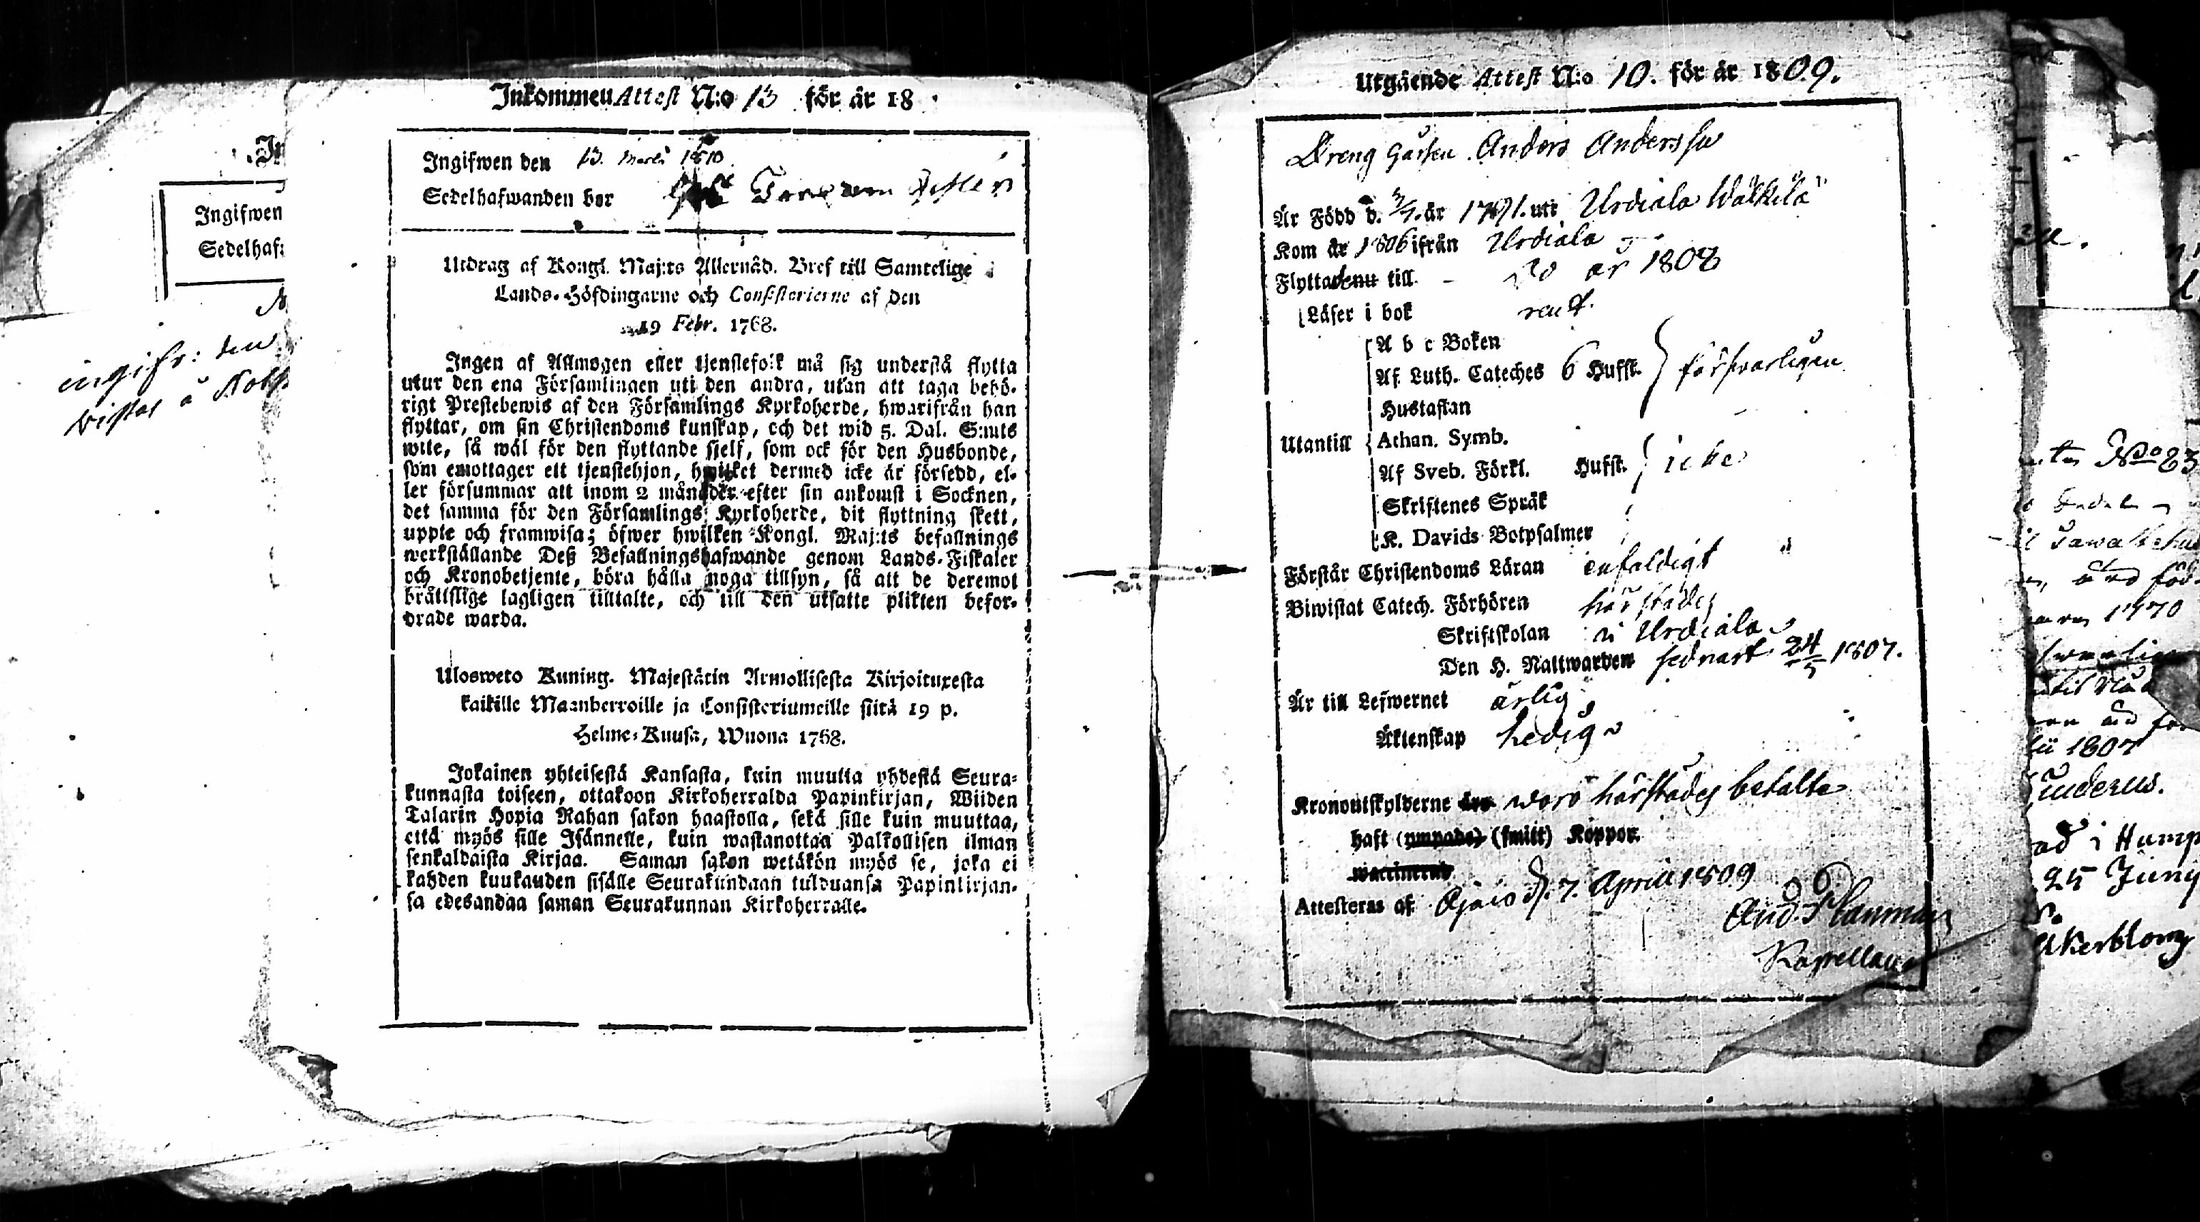 Inkommen Attest N:o 13 för år 18
Ingifwen den 13 Marti 1810
Sedelhafwanden bor
Utdrag af Kongl. Maj:ts Allernåd. Bref till Samtelige
Lands-Höfdingarne och Consistorierne af den
19 Febr. 1768.
Ingen af Allmogen eller tjenstefolk må sig understå flytta
utur den ena Församlingen uti den andra, utan att taga behö-
rigt Prestebewis af den Församlings Kyrkoherde, hwarifrån han
flyttar, om sin Christendoms kunskap, och det wid 5. Dal. S:mts
wite, så wäl för den flyttande sjelf, som ock för den Husbonde,
som emottager ett tjenstehjon, hwilket dermed icke är försedd, el-
ler försummar att inom 2 månader efter sin ankomst i Socknen,
det samma för den Församlings Kyrkoherde, dit flyttning skett,
uppte och framwisa; öfwer hwilken Kongl. Maj:ts befallnings
werkställande Deß Befallningshafwande genom Lands-Fiskaler
och Kronobetjente, böra hålla noga tillsyn, så att de deremot
bråttslige lagligen tilltalte, och till den utsatte plikten befor-
drade warda.
Ulosweto Kuning. Majestätin Armollisesta Kirjoituxesta
kaikille Maanherroille ja Consistoriumeille siitä 19 p.
Helme-Kuusa, Wuona 1768.
Jokainen yhteisestä Kansasta, kuin muutta yhdestä Seura-
kunnasta toiseen, ottakoon Kirkoherralda Papinkirjan, Wiiden
Talarin Hopia Rahan sakon haastolla, sekä sille kuin muuttaa,
että myös sille Isännelle, kuin wastanottaa Palkollisen ilman
senkaldaista Kirjaa. Saman sakon wetäkön myös se, joka ei
kahden kuukauden sisälle Seurakundaan tulduansa Papinkirjan-
sa edesandaa saman Seurakunnan Kirkoherralle.
Ingifwen
Sedelhaf
ingifv: den
Utgående Attest N:o 10. för år 1809.
Dreng Gåssen Anders Andersson
Är Född d. 3/7. år 1791. uti Urdiala Wälkilä
Kom år 1806 ifrån Urdiala
Flyttade nu till do år 1808
Läser i bok rent.
A b c Boken
Af Luth. Cateches 6 Hufst. försvarligen
Hustaflan
Utantill Athan. Symb.
Af Sveb. Förkl. Hufst. icke
Skriftenes Språk
K. Davids Botpsalmer
Förstår Christendoms Läran enfaldigt
Biwistat Catech. Förhören härstädes
Skriftskolan i Urdiala
Den H. Nattwarden sednast 24/5 1807.
Är till Lefwernet ärlig
Äktenskap ledig
Kronoutskylderne äro woro härstädes betalte
haft (ympade) (smitt) Koppor.
waccinerad
Attesteras af Ajais d. 7. April 1809
And. Planman
Kapellan
1770
1807
ad i Hump
25 Juny